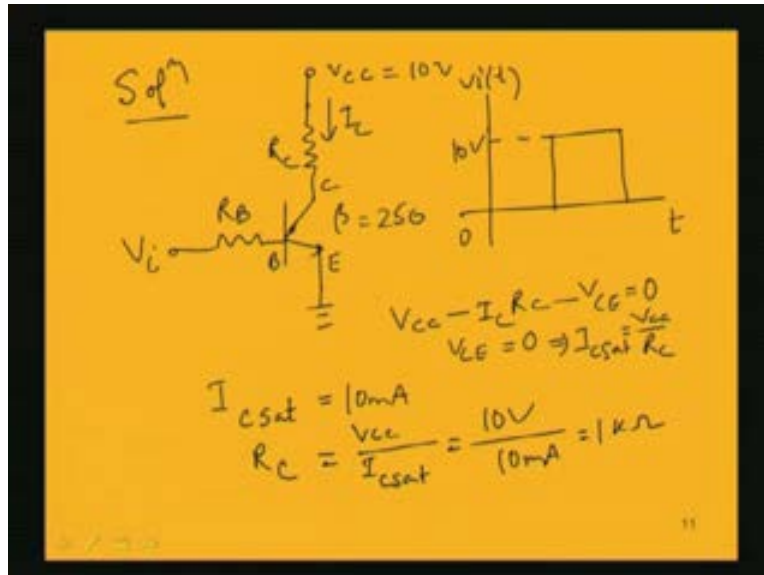 Solⁿ
Vcc = 10V
Vi(t)
Ic
Rc
10V
C
RB
β = 250
Vi
B
E
0
t
Vcc - IcRc - VCE = 0
VCE = 0 ⇒ Icsat = Vcc/Rc
Icsat = 10mA
Rc = Vcc/Icsat = 10V/10mA = 1KΩ
11